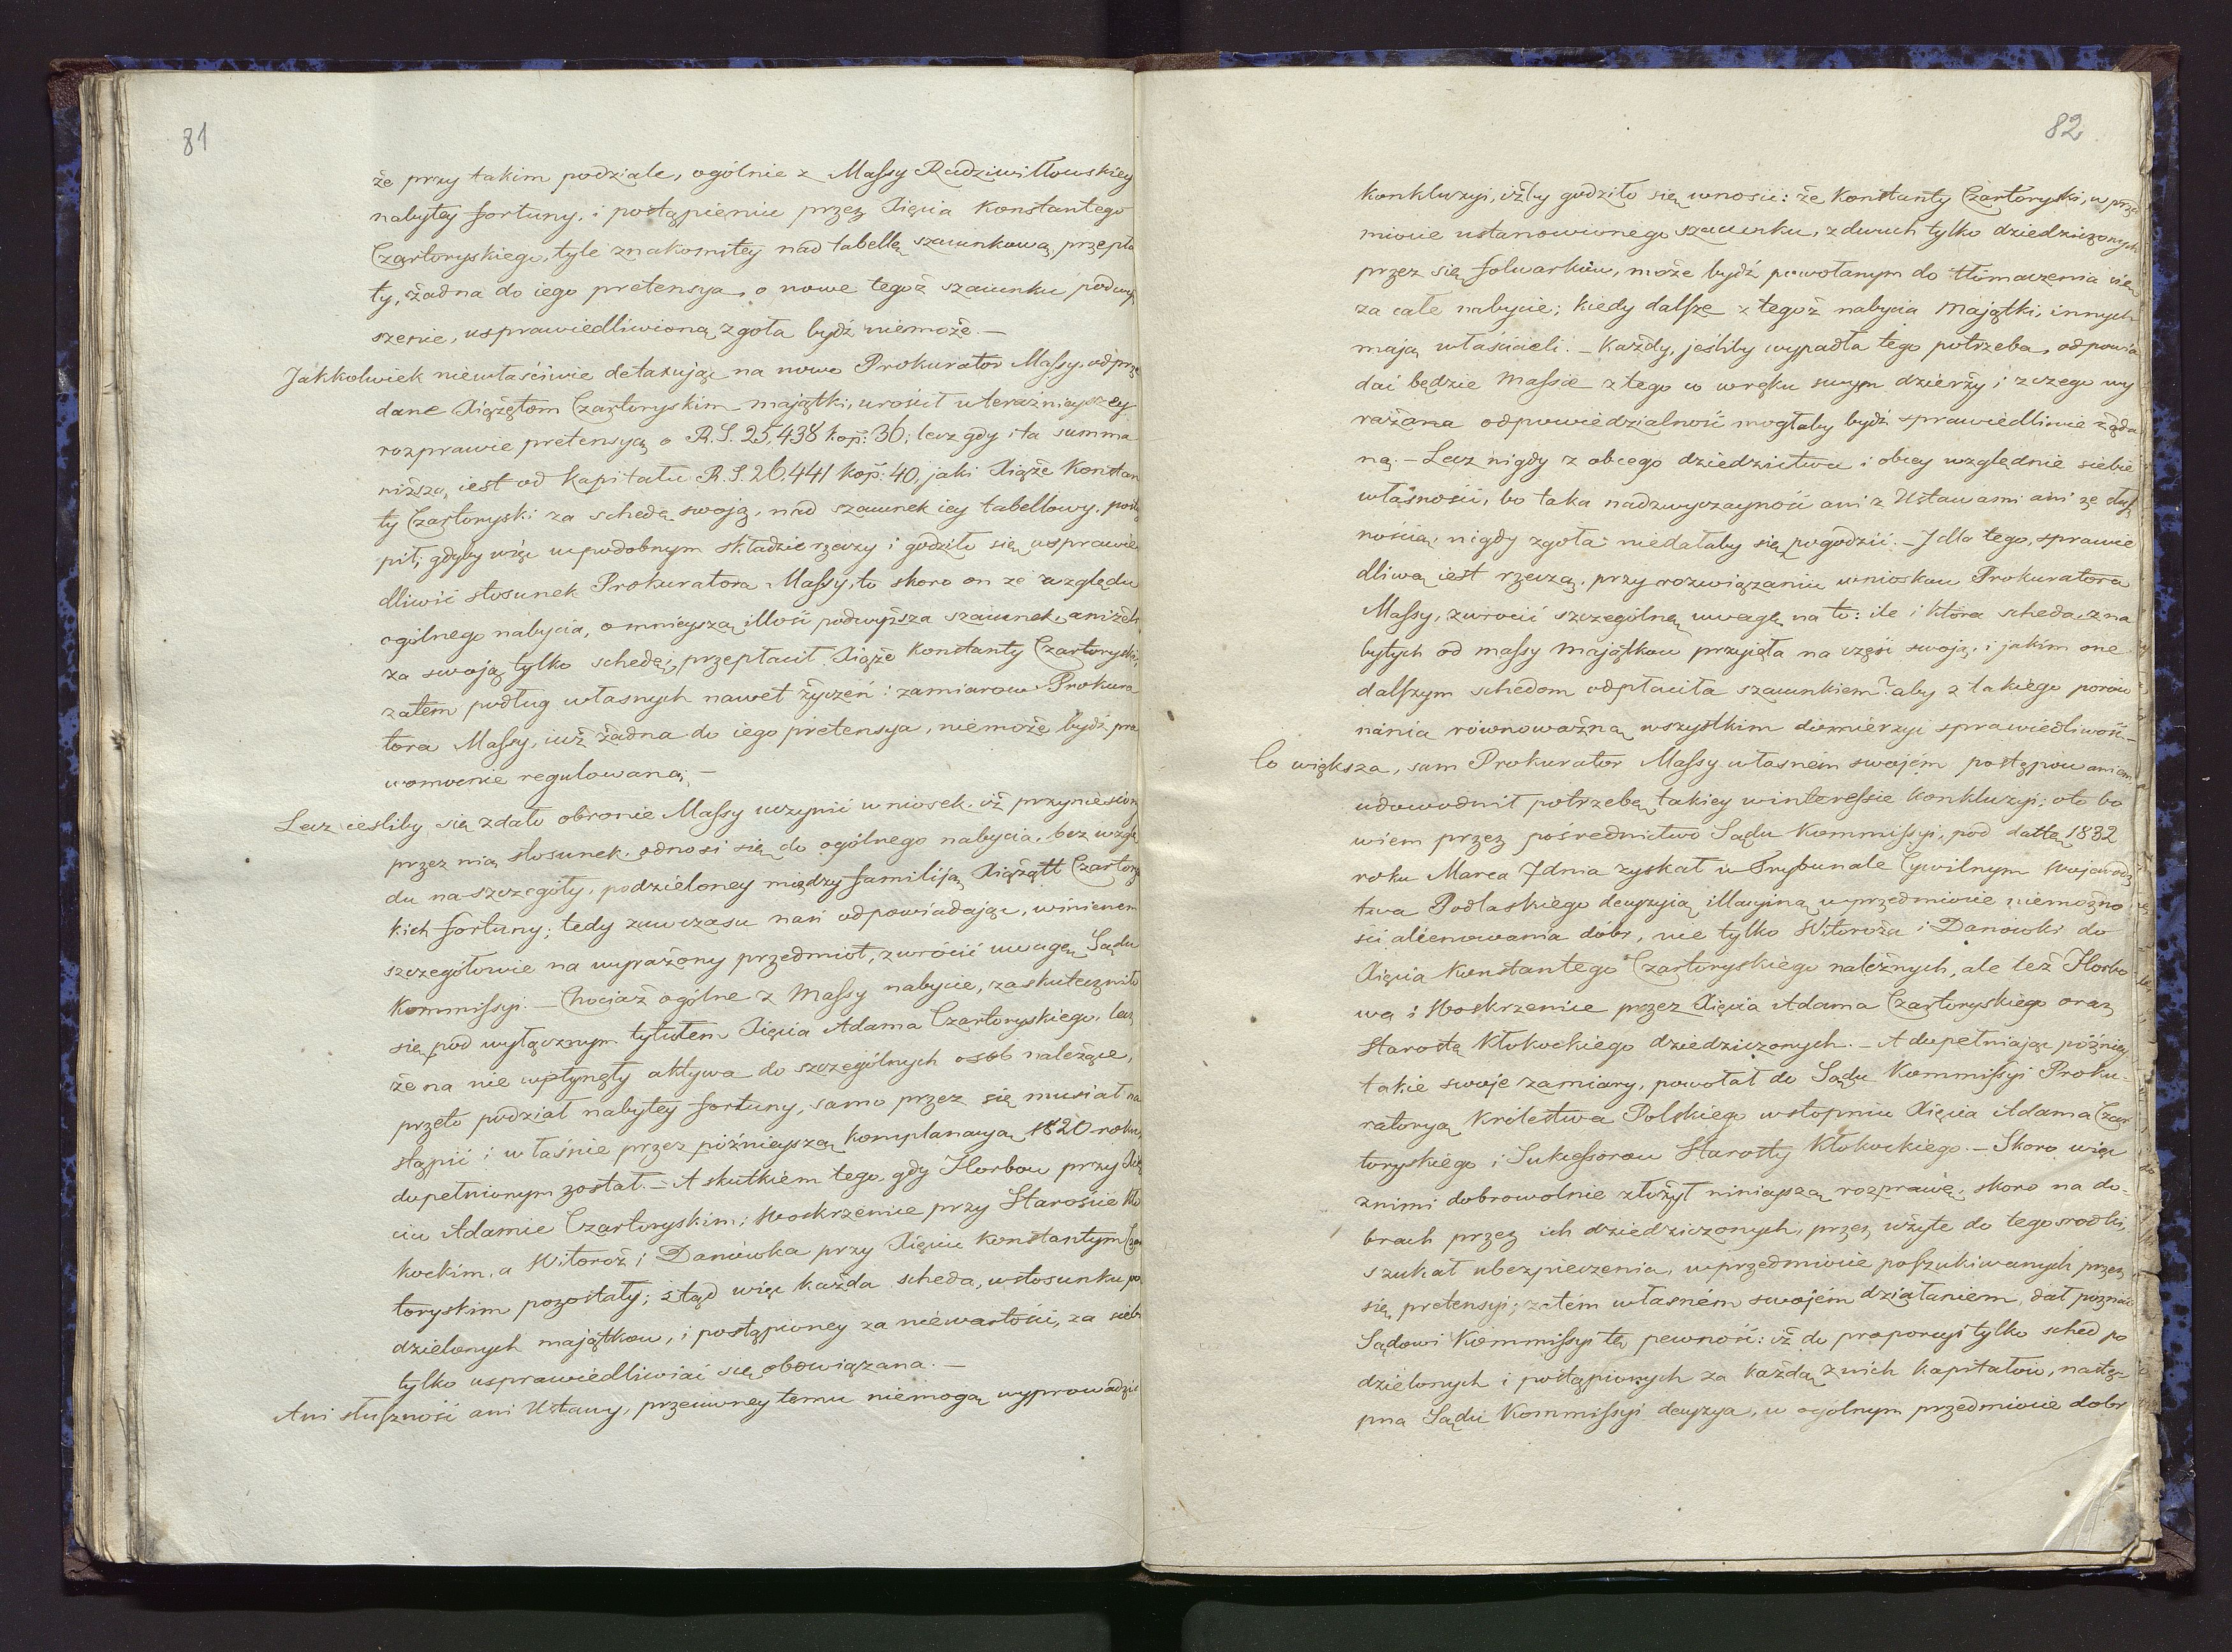 81
że przy takim podziale, ogólnie z Massy Radziwiłłowskiey
nabytey fortuny, i postąpieniu przez Xięcia Konstantego
Czartoryskiego, tyle znakomitey nad tabellę szacunkową, przepła
ty, żadna do iego pretensya, o nowe tegoż szacunku podwyż
szenie, usprawiedliwioną zgoła bydź niemoże. —
Jakkolwiek niewłaściwie detaxując na nowo Prokurator Massy, odprze
dane Xiążętom Czartoryskim majątki, urościł w teraźnieyszey
rozprawie pretensyą o R. S. 25,438 kop: 36; lecz gdy i ta summa
niższą, iest od kapitału R. S. 26,441 kop: 40, jaki Xiąże Konstan
ty Czartoryski za schedę swoją, nad szacunek iey tabellowy, postą
pił; gdyby więc w podobnym składzie rzeczy i godziło się usprawie
dliwić stosunek Prokuratora Massy, to skoro on ze względu
ogólnego nabycia, o mnieyszą illość podwyższa szacunek, aniżeli
za swoją tylko schedę, przepłacił Xiąże Konstanty Czartoryski,
zatem podług własnych nawet życzeń i zamiarow Prokura
tora Massy, iuż żadna do iego pretensya, niemoże bydź pra
womocnie regulowaną; —
Lecz ieśliby się zdało obronie Massy uczynić wniosek, iż przyniesiony
przez nią stosunek, odnosi się do ogólnego nabycia, bez wzglę
du na szczegóły, podzieloney między familiją Xiążątt Czartorys
kich fortuny; tedy zawczasu nań odpowiadając, winienem
szczegółowie na wyrażony przedmiot, zwrócić uwagę Sądu
Kommissyi. — Chociaż ogólne z Massy nabycie, zaskuteczniło
się pod wyłącznym tytułem Xięcia Adama Czartoryskiego, lecz
że na nie wpłynęły aktywa do szczególnych osób należące,
przeto podział nabytey fortuny, samo przez się musiał na
stąpić i właśnie przez późnieyszą komplanacyą 1820 roku,
dopełnionym został. — A skutkiem tego, gdy Horbow przy Xię
ciu Adamie Czartoryskim; Woskrzenice przy Starościе Kło
kockim, a Witoroż i Danówka przy Xięciu Konstantym Czar
toryskim pozostały; ztąd więc każda scheda, w stosunku po
dzielonych majątkow, i postąpioney za nie wartości, za siebie
tylko usprawiedliwiać się obowiązana. —
Ani słuszność ani Ustawy, przeciwney temu niemogą wyprowadzić
82
konkluzyi, iżby godziło się wnosić: że Konstanty Czartoryski, w przed
miocie ustanowionego szacunku, z dwuch tylko dziedziczonych
przez się folwarków, może bydź powołanym do tłómaczenia się
za całe nabycie; kiedy dalsze z tegoż nabycia majątki, innych
mają właścicieli. — Każdy, jeśliby wypadła tego potrzeba, odpowia
dać będzie Massie z tego co w ręku swym dzierży i z czego wy
rażana odpowiedzialność mogłaby bydź sprawiedliwie żąda
ną. — Lecz nigdy z obcego dziedzictwa i obcey względnie siebie
własności, bo taka nadzwyczayność ani z Ustawami ani ze słusz
nością, nigdy zgoła niedałaby się pogodzić. — I dla tego, sprawie
dliwą iest rzeczą, przy rozwiązaniu wnioskow Prokuratora
Massy, zwrócić szczególną uwagę na to: ile i która scheda, z na
bytych od massy majątkow przyięła na część swoją, i jakim one
dalszym schedom odpłaciła szacunkiem? aby z takiego porów
nania równoważną wszystkim domierzyć sprawiedliwość —
Co większa, sam Prokurator Massy własném swojém postępowaniem
udowodnił potrzebę takiey w interessie konkluzyi; oto bo
wiem przez pośrednictwo Sądu Kommissyi, pod dattą 1832
roku Marca 7 dnia zyskał w Trybunale Cywilnym Wojewódz
twa Podlaskiego decyzyią illacyiną w przedmiocie niemożno
ści alienowania dóbr, nie tylko Witoroża i Danówki do
Xięcia Konstantego Czartoryskiego należnych, ale też Horbo
wa i Woskrzenice przez Xięcia Adama Czartoryskiego oraz
Starostę Kłokockiego dziedziczonych. — A dopełniając późniey
takie swoje zamiary, powołał do Sądu Kommissyi Proku-
ratoryą Królestwa Polskiego w stopniu Xięcia Adama Czar
toryskiego i Sukcessorow Starosty Kłokockiego. — Skoro więc
z nimi dobrowolnie złożył niniejszą rozprawę, skoro na do-
brach przez ich dziedziczonych, przez użyte do tego środki,
szukał ubezpieczenia, w przedmiocie poszukiwanych przez
się pretensyi; zatém własném swojém działaniem, dał poznać
Sądowi Kommissyi tę pewność: iż do proporcyi tylko sched po
dzielonych i postąpionych za każdą z nich kapitałów, nastą-
pna Sądu Kommissyi decyzya, w ogólnym przedmiocie dobr